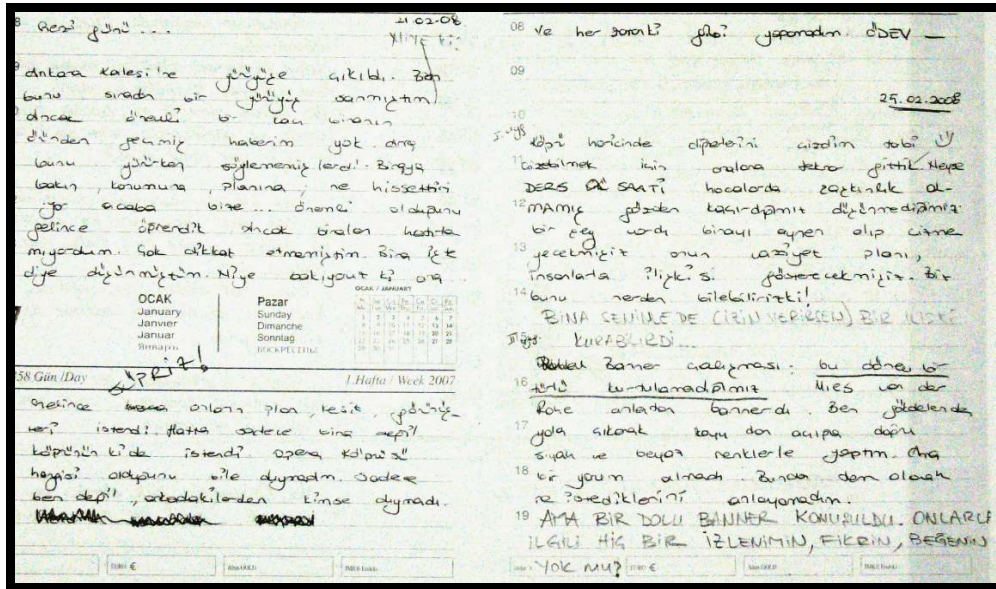 Gezi günü ...
21.02.08
Ankara Kalesi'ne yürüyüşe çıkıldı. Ben
bunu sıradan bir yürüyüş sanmıştım
ancak önemli bir kaç binanın
önünden geçmiş haberim yok ama
bunu yürürken söylememişlerdi. Binaya
bakın, konumuna, planına, ne hissettiri
iyor acaba bize ... önemli olduğunu
gelince öğrendik ancak binaları hatırla
mıyordum. Çok dikkat etmemiştim. Bina işte
diye düşünmüştüm. Niye bakıyoruz ki ona
OCAK
January
Janvier
Januar
Январь
Pazar
Sunday
Dimanche
Sonntag
ВОСКРЕСЕНЬЕ
OCAK / JANUARY
SÜPRİZ!
358 Gün /Day
1.Hafta / Week 2007
Gelince onların plan, kesit, görünüş
leri istendi. Hatta sadece bina değil
köprünün ki de istendi. Opera Köprüsü
hangisi olduğunu bile duymadım. Sadece
ben değil, arkadakilerden kimse duymadı.
EURO €
08 Ve her zaman ki gibi yapamadım. ÖDEV —
09
25.02.2008
10
Köprü haricinde diğerlerini çizdim tabi
11 çizebilmek için oralara tekrar gittik. Neyse
DERS SAATİ hocalarda şaşkınlık al-
12 MAMIŞ gözden kaçırdığımız düşünmediğimiz
bir şey vardı binayı aynen alıp çizme
13 yecekmişiz onun vaziyet planı,
insanlarla ilişkisi gösterecekmişiz. Biz
14 bunu nerden bilebilirizki!
BİNA SENİNLE DE (İZİN VERİRSEN) BİR İLİŞKİ
15 KURABİLİRDİ...
Banner çalışması. bu dönem bir
16 türlü kurtulamadığımız Mies van der
Rohe anlatan bannerdı. Ben gökdelenden
17 yola çıkarak koyu dan açığa doğru
siyah ve beyaz renklerle yaptım. Ama
18 bir yorum almadı. Bundan dem alarak
ne istediklerini anlayamadım.
19 AMA BİR DOLU BANNER KONUŞULDU. ONLARLA
İLGİLİ HİÇ BİR İZLENİMİN, FİKRİN, BEĞENİN
YOK MU?
EURO €